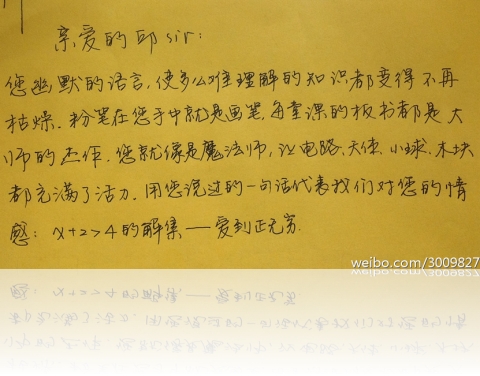 亲爱的邱sir:
您幽默的语言,使多么难理解的知识都变得不再
枯燥.粉笔在您手中就是画笔,每堂课的板书都是大
师的杰作.您就像是魔法师,让电路、天体、小球、木块
都充满了活力.用您说过的一句话代表我们对您的情
感: x+2>4的解集——爱到正无穷.
weibo.com/3009827